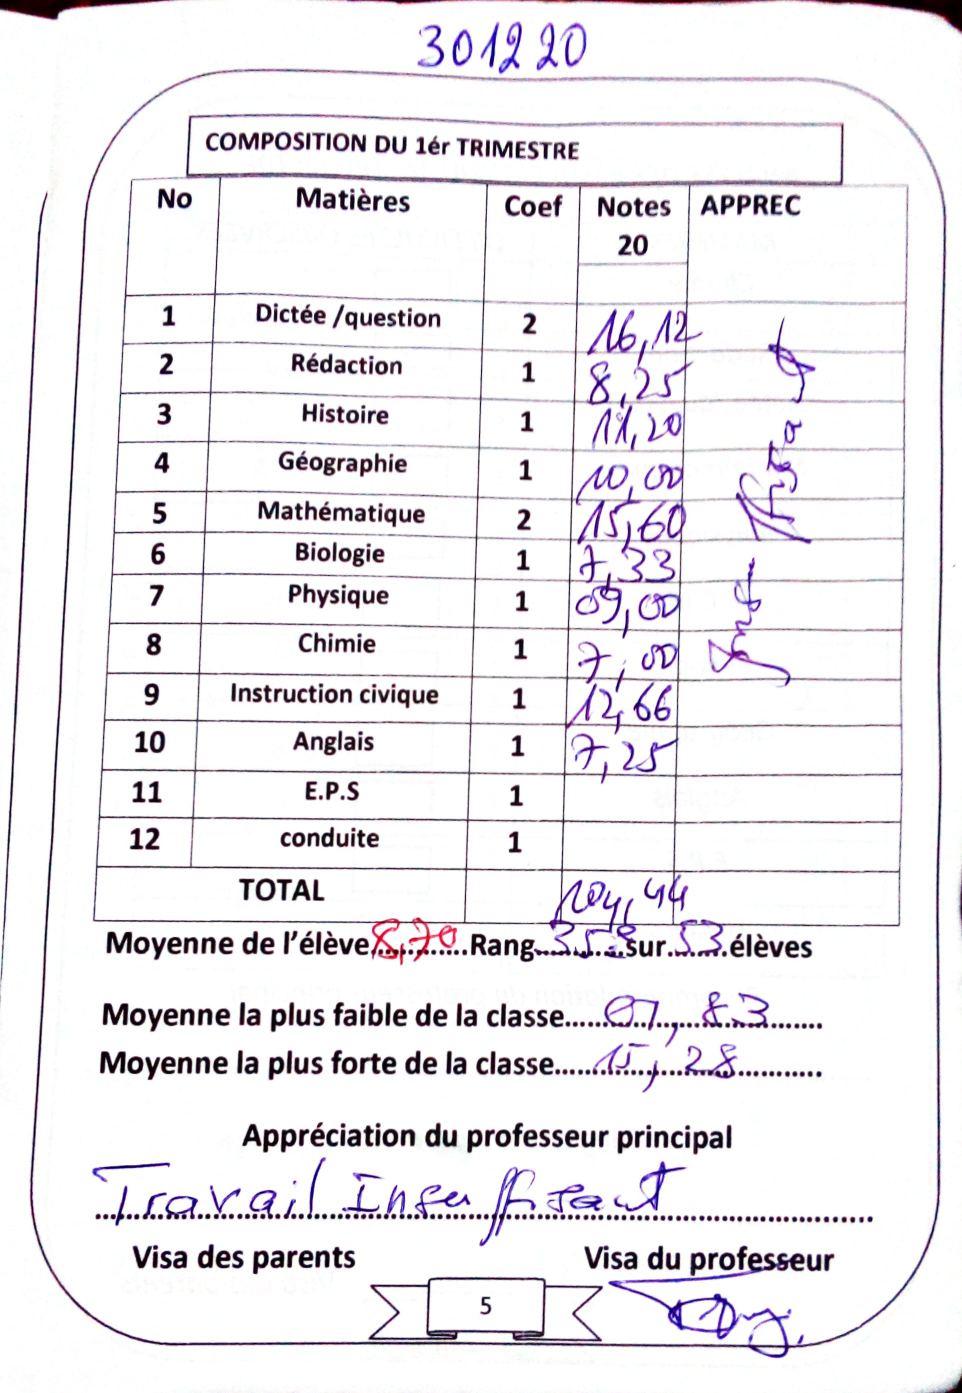 301220
COMPOSITION DU 1ér TRIMESTRE
No Matières Coef Notes 20 APPREC
1 Dictée /question 2 16,12
2 Rédaction 1 8,25
3 Histoire 1 11,20
4 Géographie 1 10,00
5 Mathématique 2 15,60
6 Biologie 1 7,33
7 Physique 1 09,00
8 Chimie 1 7,00
9 Instruction civique 1 12,66
10 Anglais 1 7,25
11 E.P.S 1
12 conduite 1
TOTAL 104,44
Moyenne de l'élève 8,70 Rang 35e sur 53 élèves
Moyenne la plus faible de la classe 07,83
Moyenne la plus forte de la classe 15,28
Appréciation du professeur principal
Travail Insuffisant
Visa des parents Visa du professeur
5